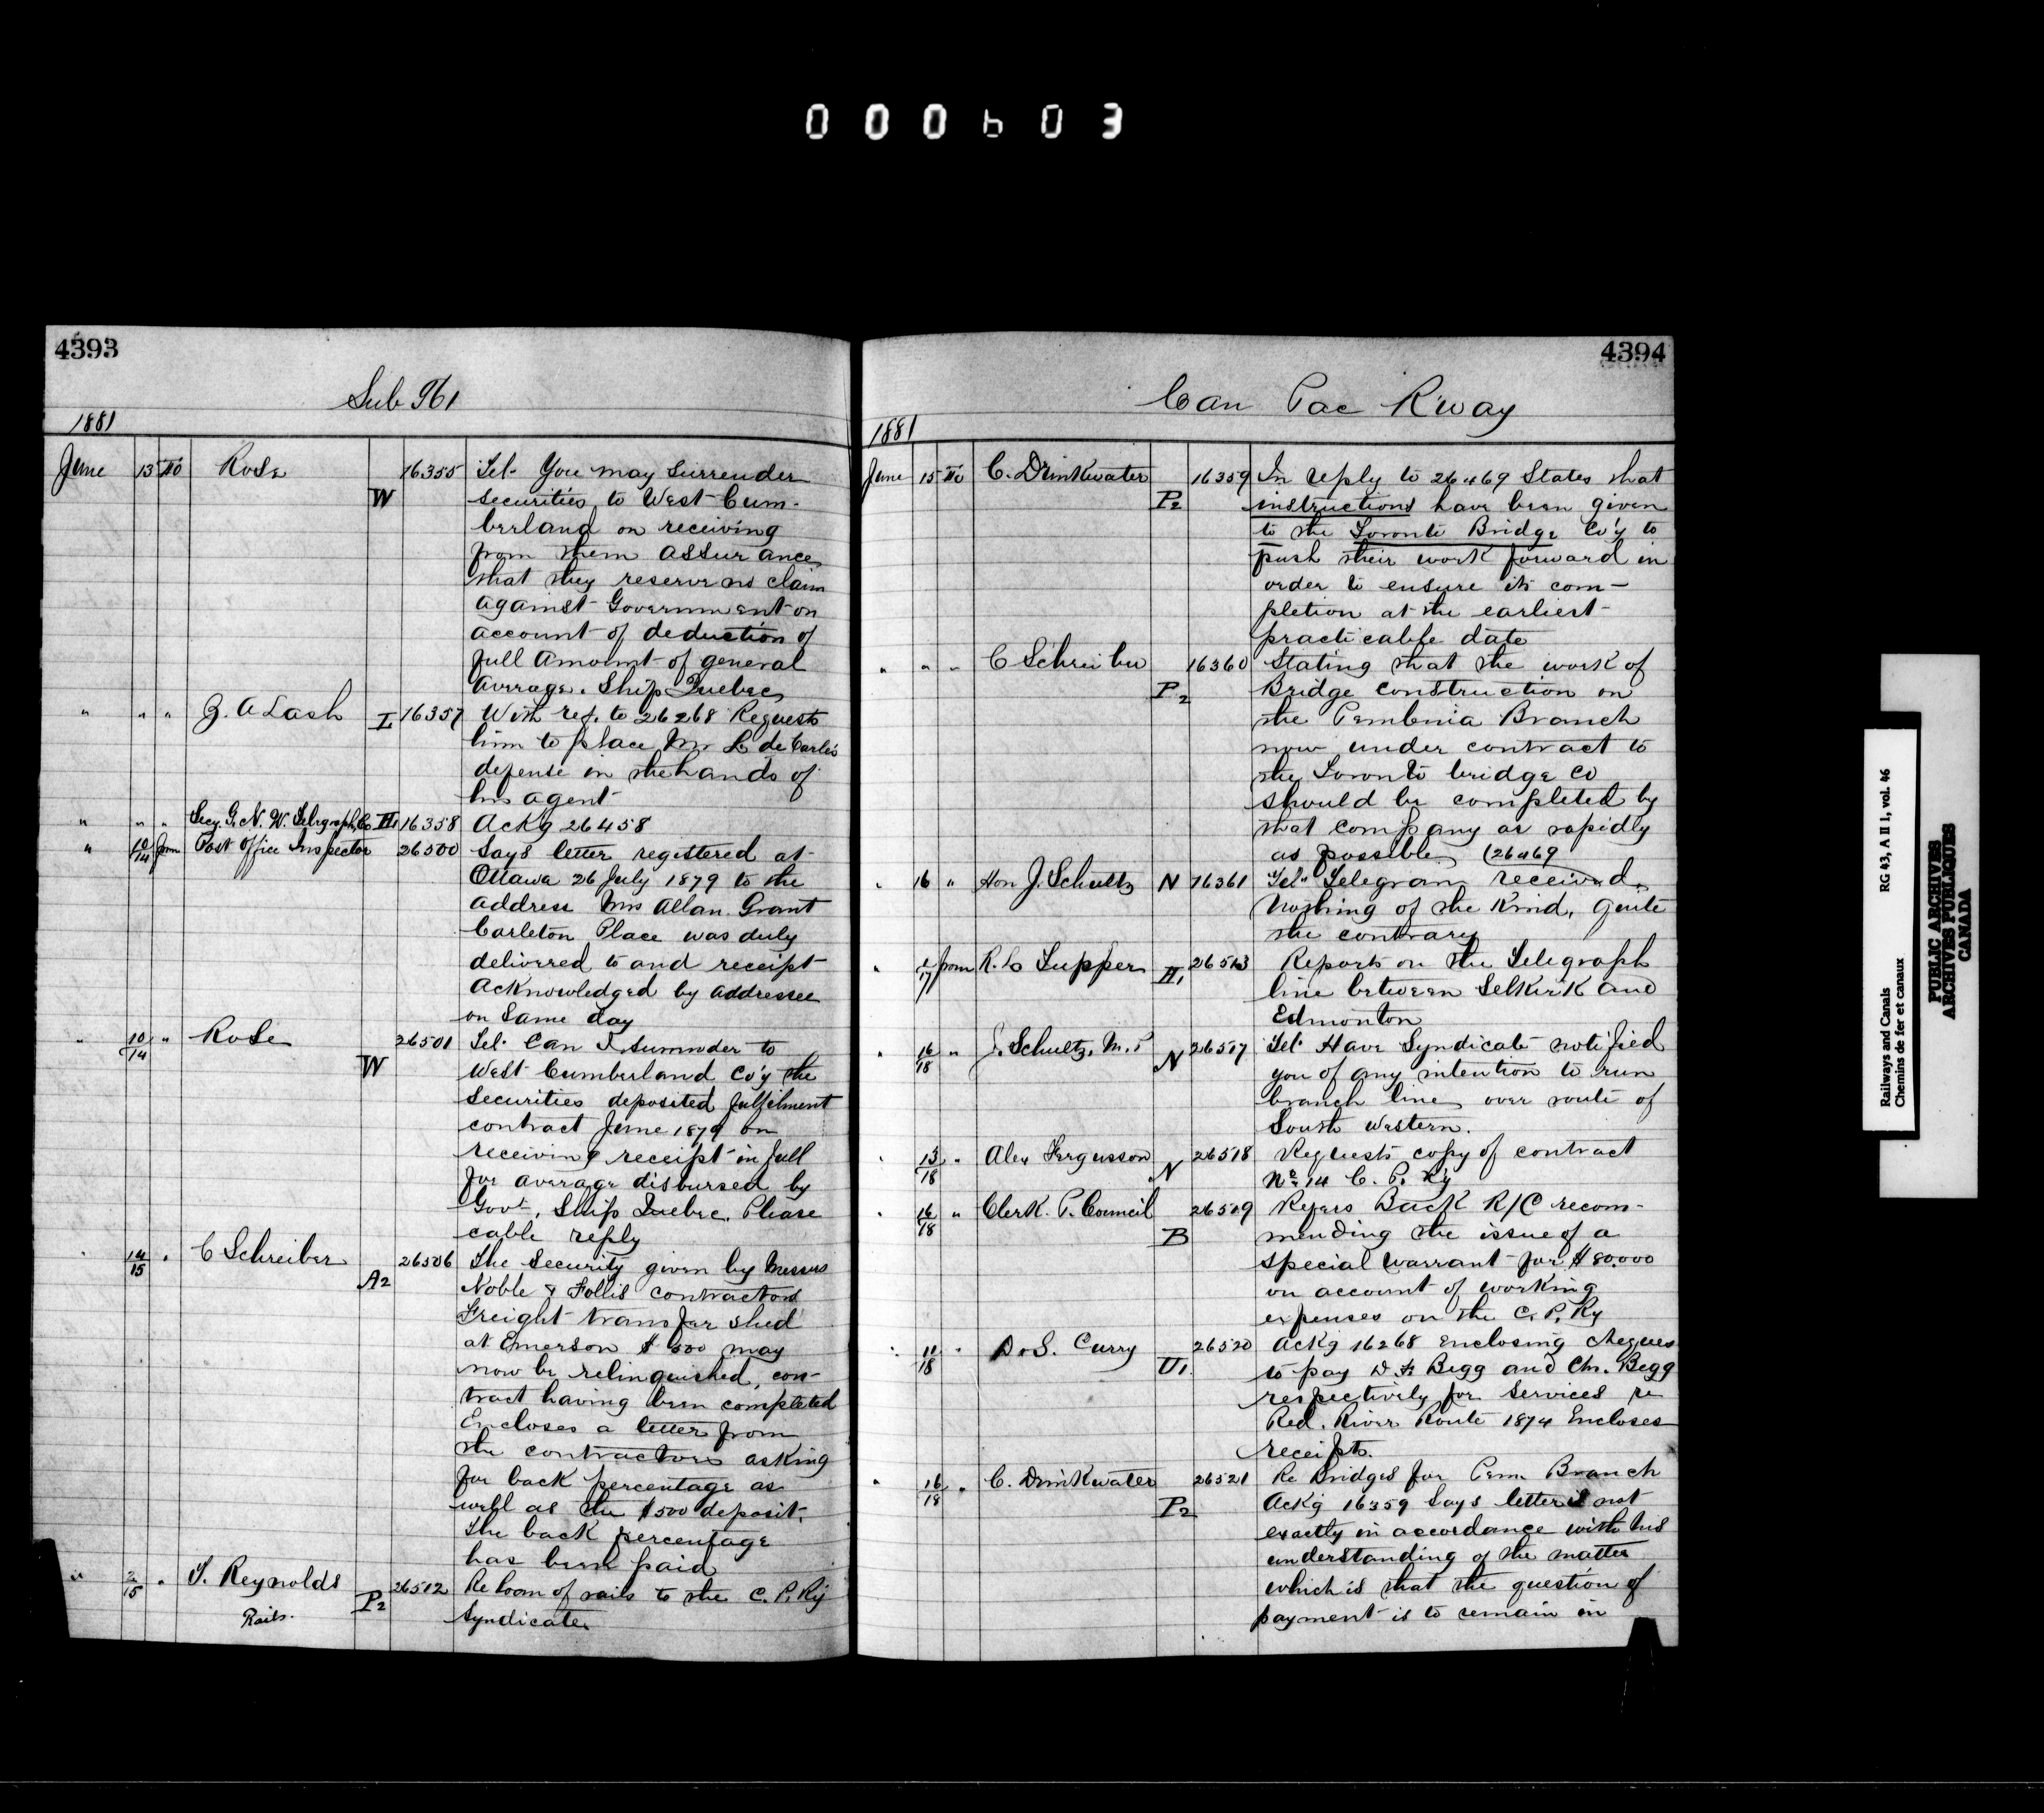 000603
4393
Sub 961
1881
June 13 To Rose W 16355 Tel. You may surrender
securities to West Cum-
berland on receiving
from them assurance
that they reserve no claim
against Government on
account of deduction of
full amount of general
average. Ship Quebec
" " " Z. A Lash L 16357 With ref. to 26268 Requests
him to place Mr L de Carle's
defense in the hands of
his agent
" " " Secy. G. N. W. Telegraph Co H1 16358 Ackg 26458
" 10/14 from Post Office Inspector 26500 Says letter registered at
Ottawa 26 July 1879 to the
address Mrs Allan Grant
Carleton Place was duly
delivered to and receipt
acknowledged by addressee
on same day
" 10/14 " Rose W 26501 Tel. Can I surrender to
West Cumberland Co'y the
securities deposited fulfilment
contract June 1879 on
receiving receipt in full
for average disbursed by
Govt, Ship Quebec. Please
cable reply
" 14/15 " C Schreiber A2 26506 The security given by Messrs
Noble & Follis contractors
Freight transfer shed
at Emerson $500 may
now be relinquished, con-
tract having been completed
Encloses a letter from
the contractors asking
for back percentage as
well as the $500 deposit.
The back percentage
has been paid
" 2/15 " T. Reynolds P2 26512 Re loan of rails to the C. P. Ry
Rails.
Syndicate
4394
Can Pac R'way
1881
June 15 To C. Drinkwater P2 16359 In reply to 26469 States that
instructions have been given
to the Toronto Bridge Co'y to
push their work forward in
order to ensure its com-
pletion at the earliest
practicable date
" " " C Schreiber P2 16360 Stating that the work of
Bridge construction on
the Pembina Branch
now under contract to
the Toronto bridge Co
should be completed by
that company as rapidly
as possible (26469
" 16 " Hon J. Schultz N 16361 Tel. Telegram received.
Nothing of the kind, quite
the contrary
" 1/17 from R. L Tupper H1 26513 Reports on the Telegraph
line between Selkirk and
Edmonton
" 16/18 " J. Schultz, M. P N 26517 Tel. Have Syndicate notified
you of any intention to run
branch line over route of
South Western.
" 13/18 " Alex Fergusson N 26518 Requests copy of contract
No. 14 C. P. R'y
" 16/18 " Clerk. P. Council B 26519 Refers Back R/C recom-
mending the issue of a
special warrant for $80.000
on account of working
expenses on the C. P. Ry
" 11/18 " D. S. Curry U1 26520 Ackg 16268 enclosing cheques
to pay Begg and Begg
respectively for services re
Red. River Route 1874 Encloses
receipts.
" 16/18 " C. Drinkwater P2 26521 Re Bridges for Pem. Branch
Ackg 16359 Says letter is not
exactly in accordance with his
understanding of the matter
which is that the question of
payment is to remain in
Railways and Canals RG 43, A II 1, vol. 46
Chemins de fer et canaux
PUBLIC ARCHIVES
ARCHIVES PUBLIQUES
CANADA